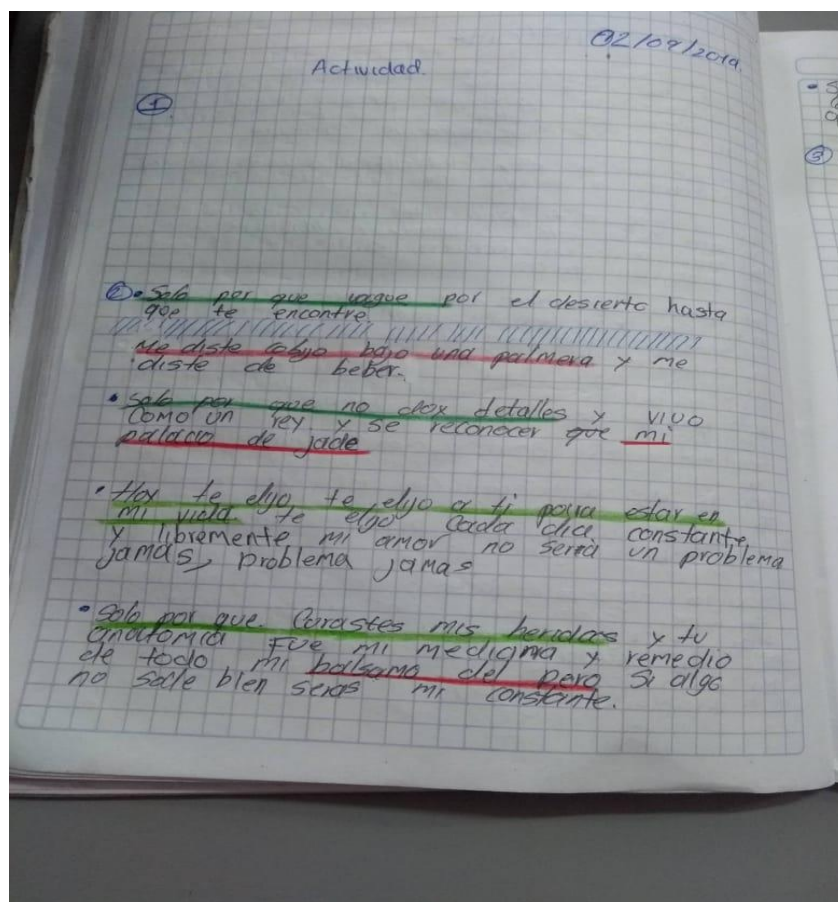 02/09/2019.
Actividad.
1
2 • Solo por que vague por el desierto hasta
que te encontre.
Me diste cobijo bajo una palmera y me
diste de beber.
• solo por que no dox detalles y vivo
como un rey y se reconocer que mi
palacio de jade
• Hoy te elijo, te elijo a ti para estar en
mi vida te elijo cada dia constante,
y libremente mi amor no seria un problema
jamas, problema jamas
• Solo por que. Curastes mis heridas y tu
anatomia Fue mi medicina y remedio
de todo mi balsamo del pero Si algo
no sale bien seras mi constante.
3